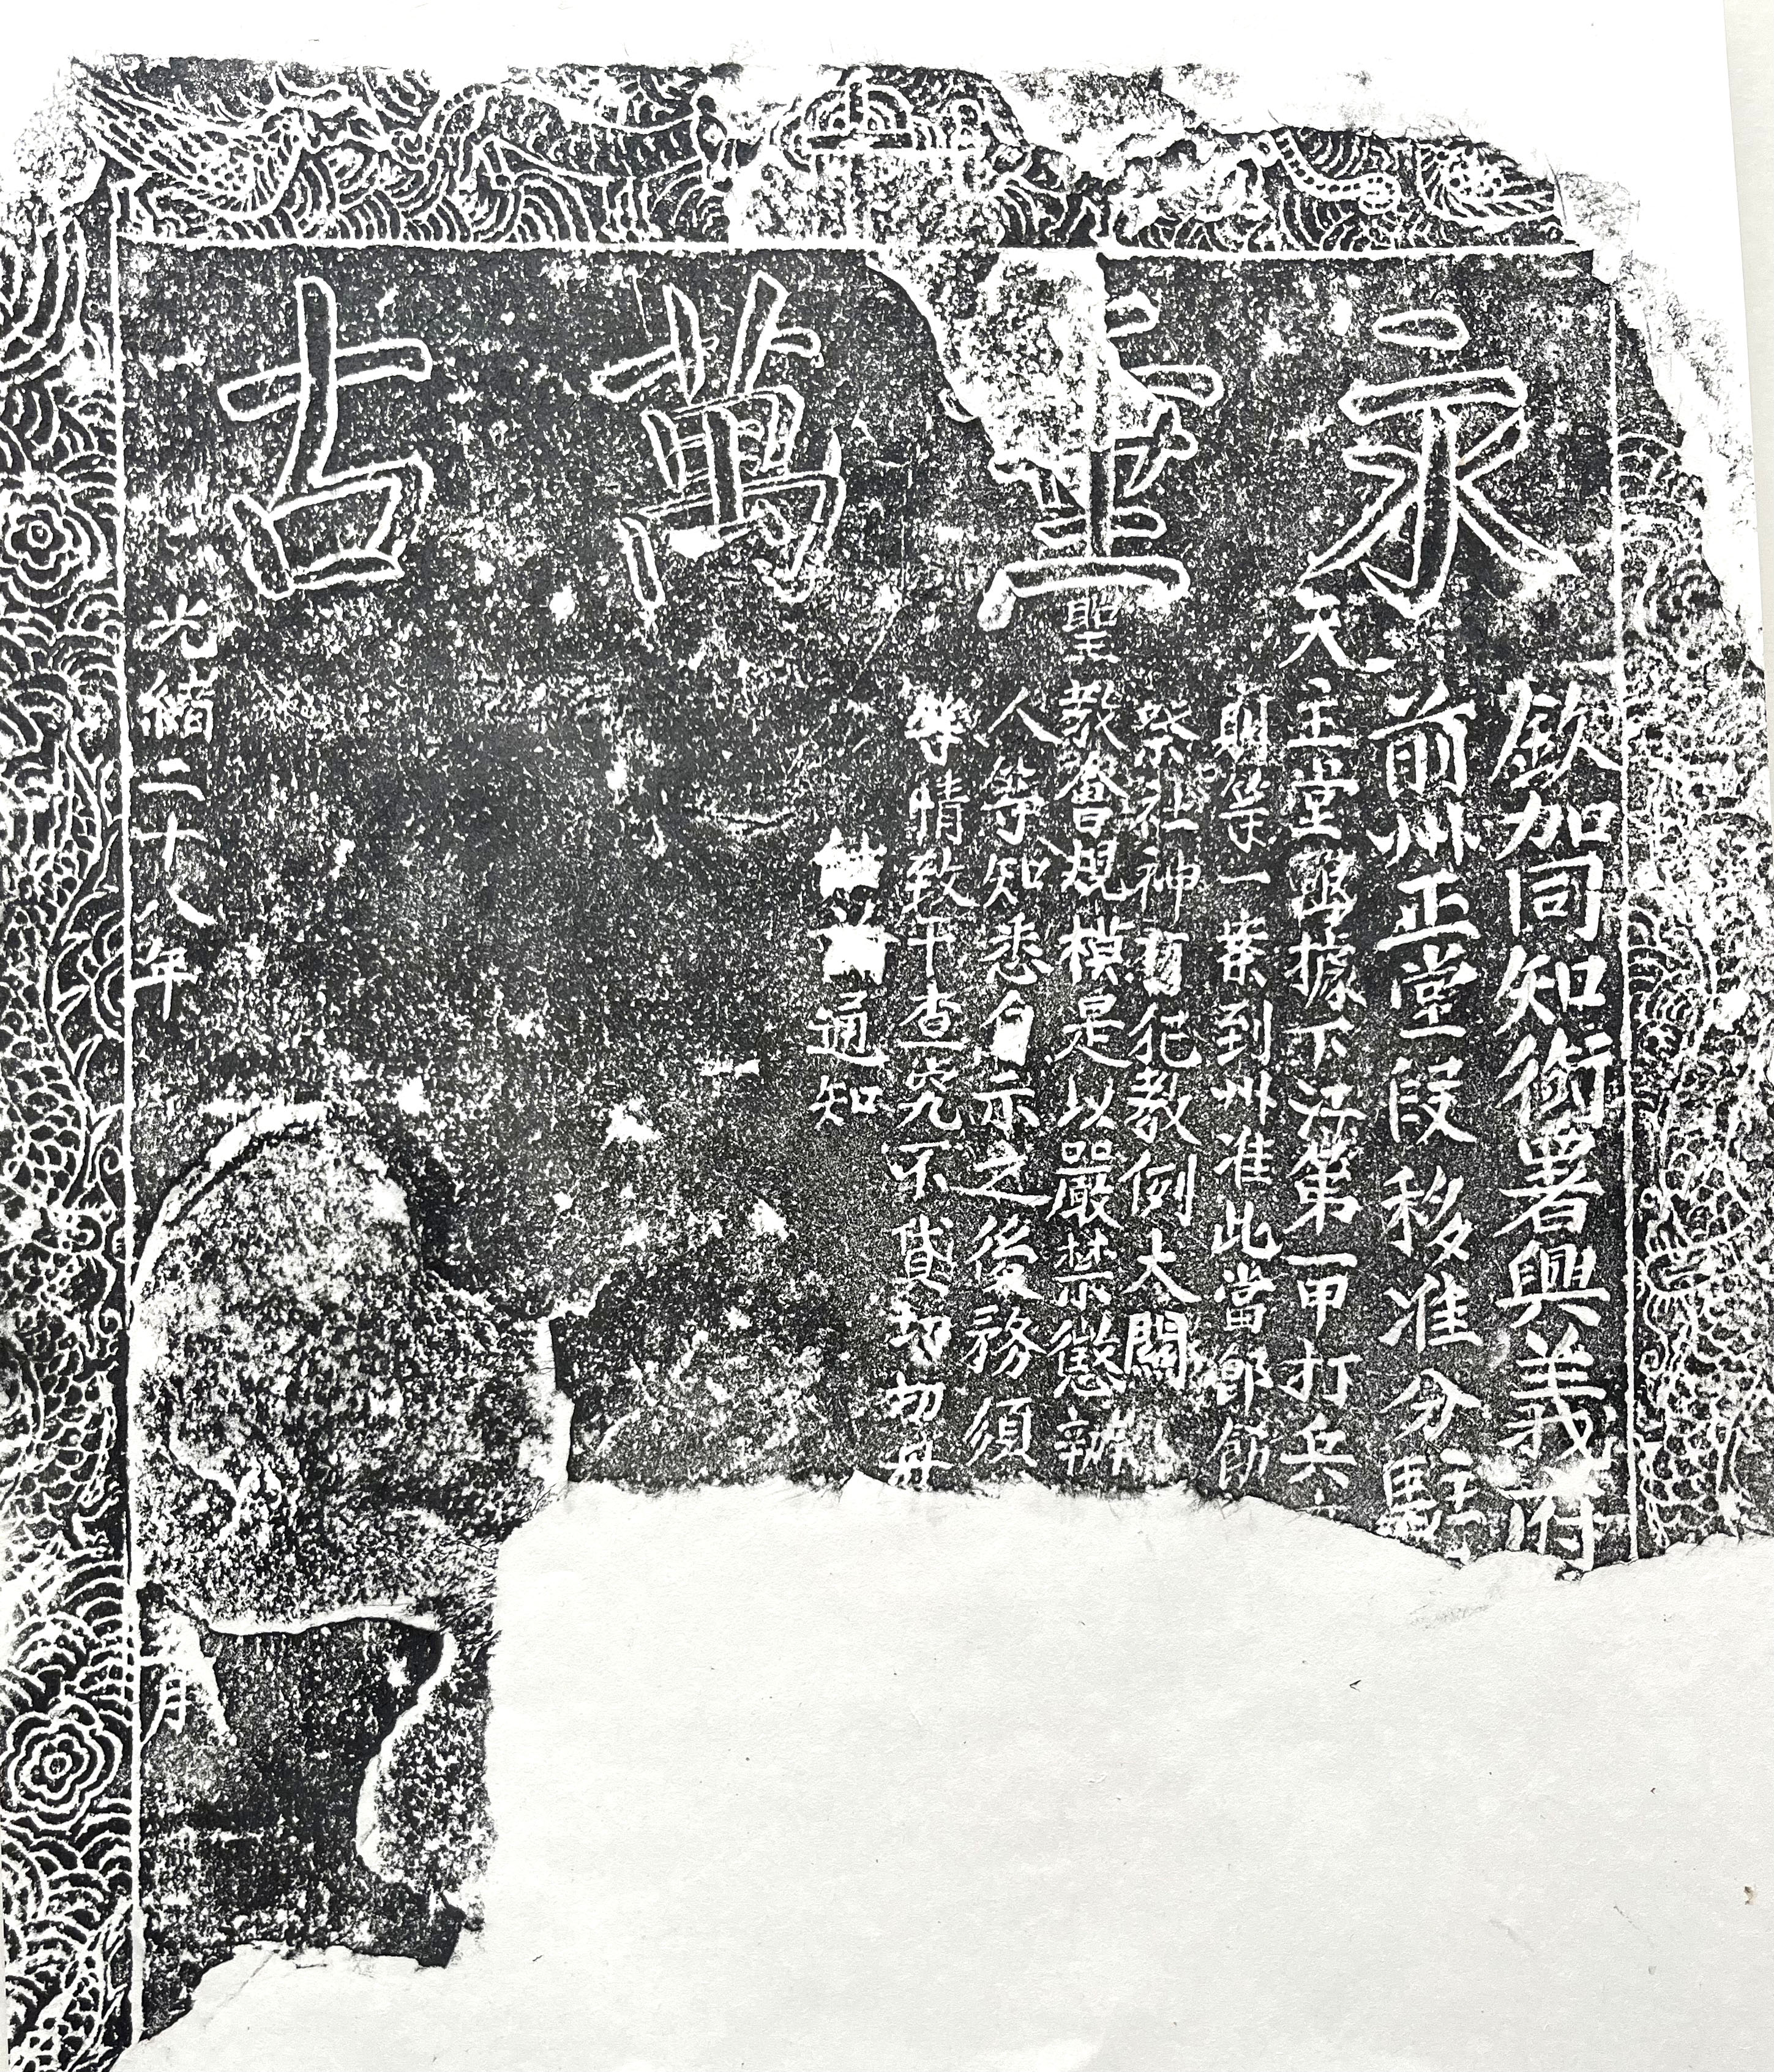 永垂萬古
欽加同知銜署興義府
前州正堂段移准分駐
天主堂函據下江第一甲打兵
期等一案到州准此當即飭
祭社神有犯教例大關
聖教會規模是以嚴禁懲辦
人等知悉自示之後務須
等情致干查究不貸切切毋
通知
光緒二十八年
月